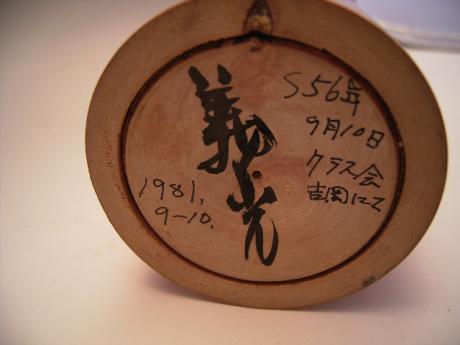 S56年
9月10日
クラス会
吉岡にて
義光
1981,
9-10.